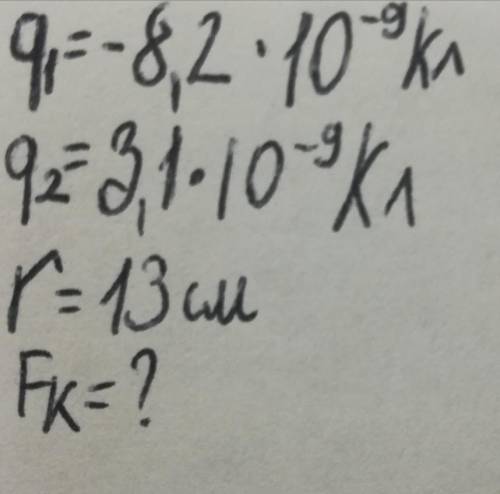 q₁=-8,2·10⁻⁹Кл
q₂=3,1·10⁻⁹Кл
r=13см
Fк=?